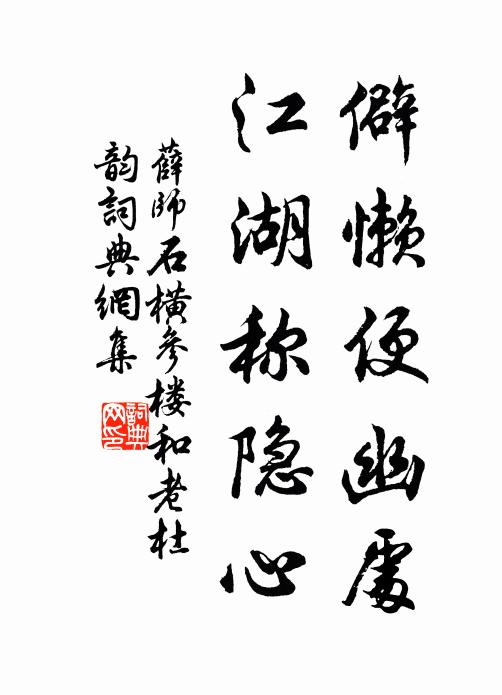 僻懒便幽處
江湖称隐心
薛師石橫參楼和老杜
韵詞典網集
詞典
网印